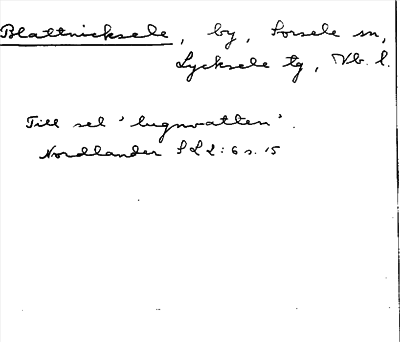 Blattnicksele, by, Sorsele sn,
Lycksele tg, Vb. l.
Till sel 'lugnvatten'.
Nordlander SL 2:6 s. 15